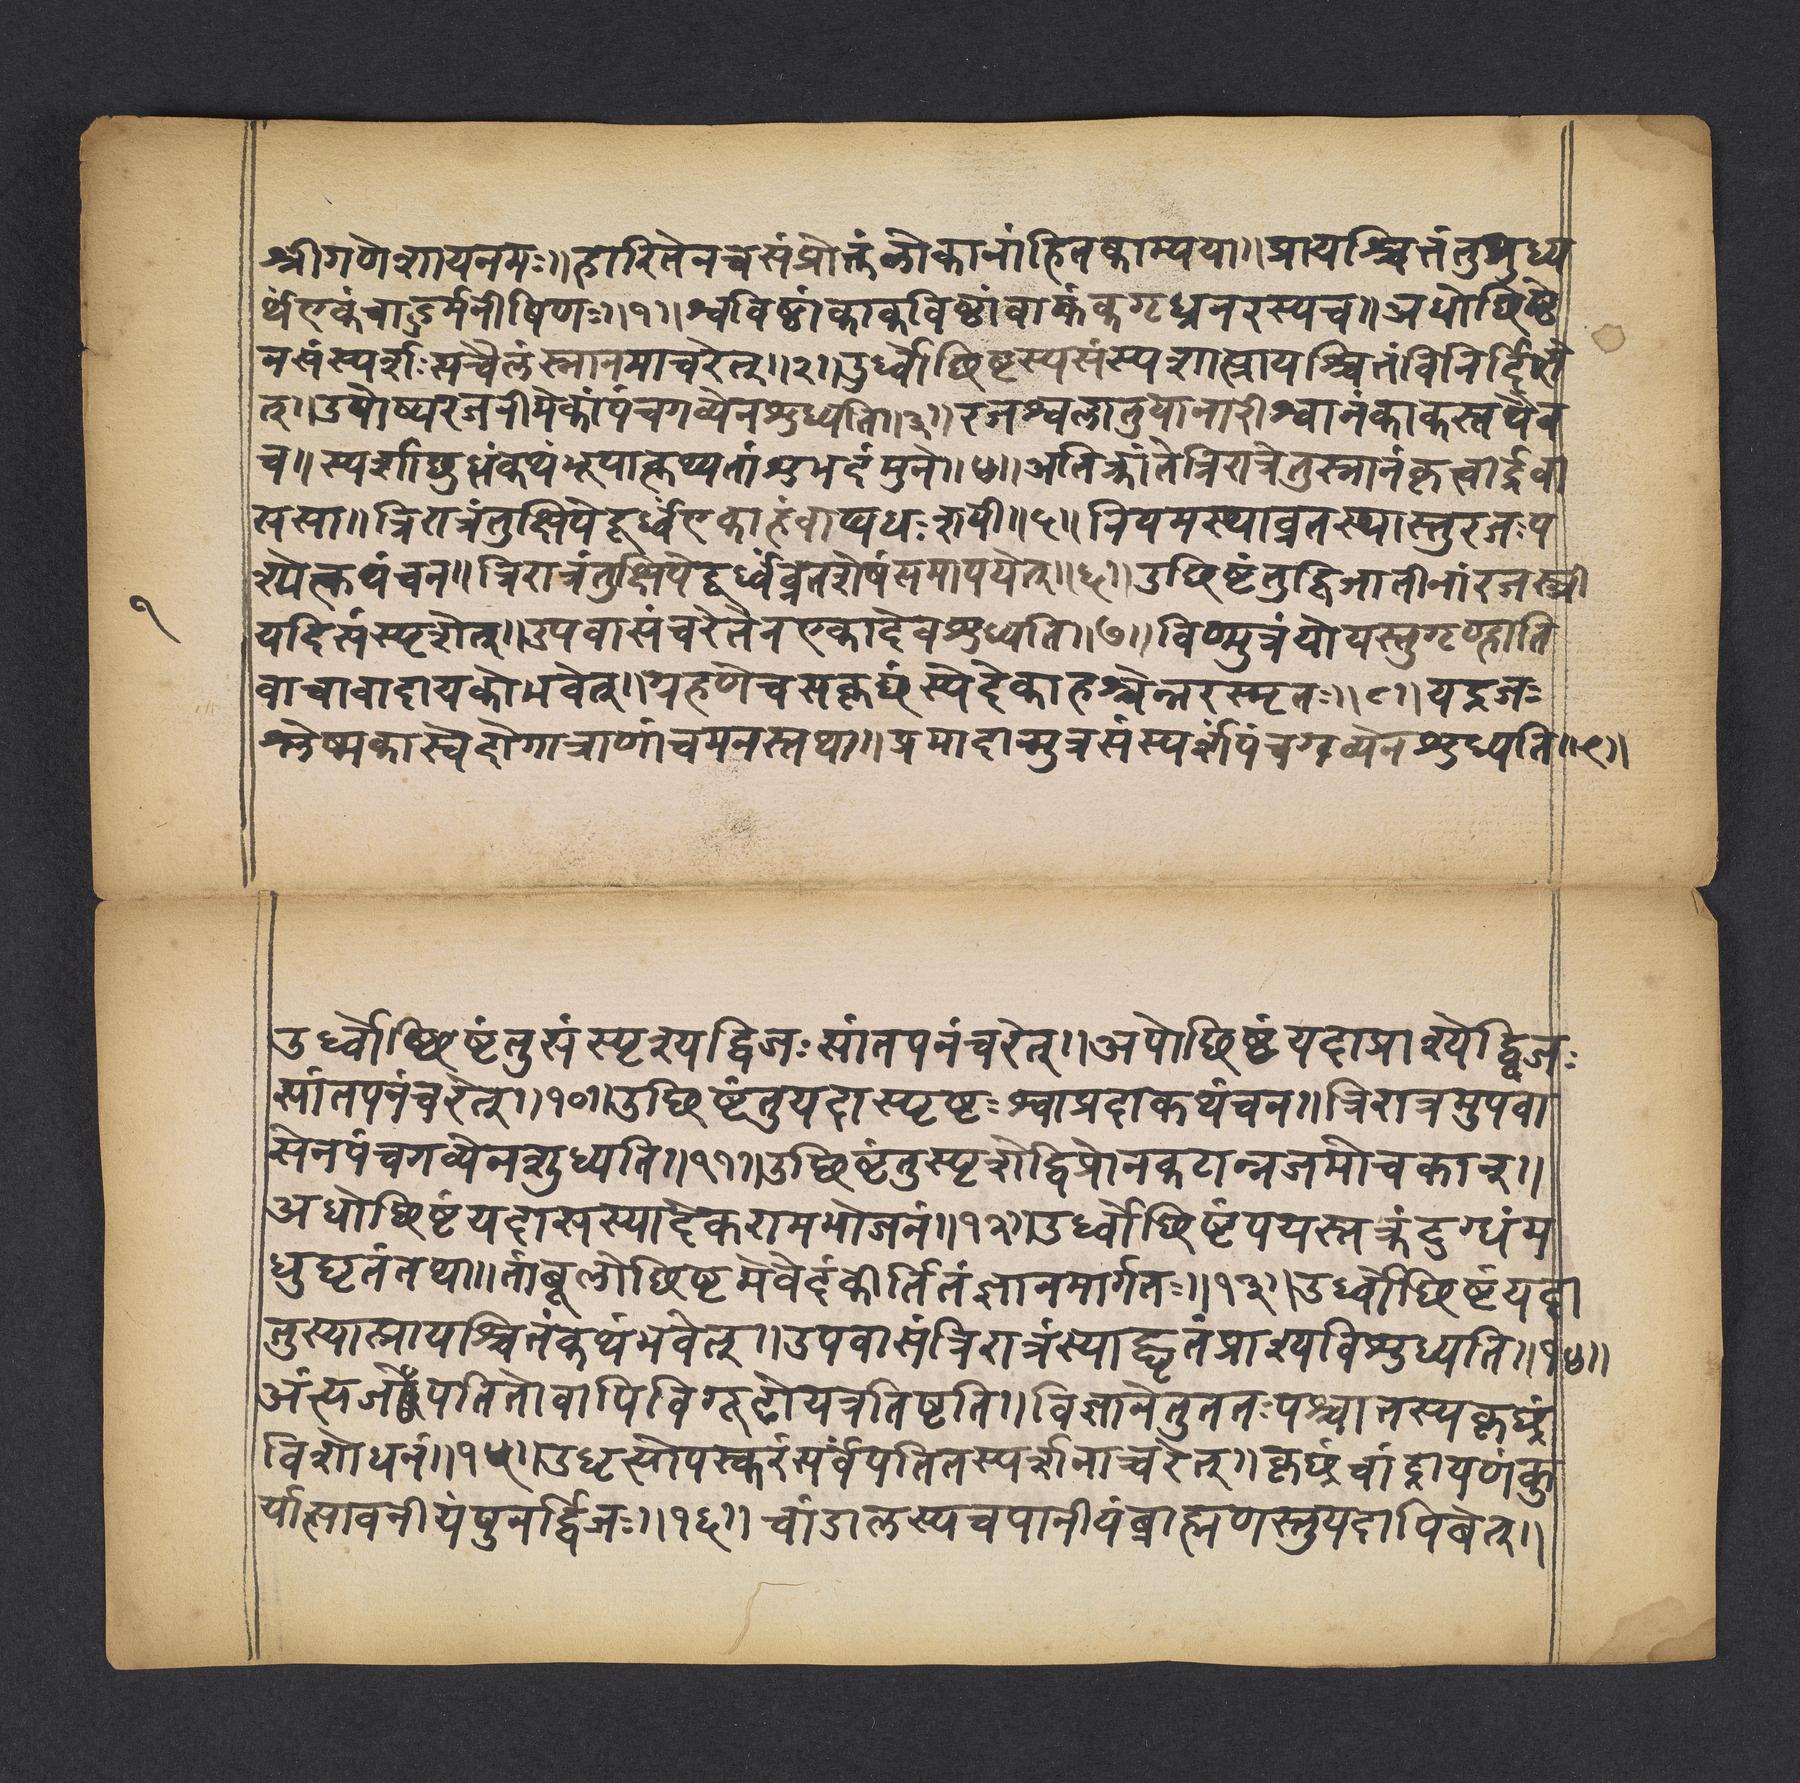 श्रीगणेशायनमः॥हारितेनचसंप्रोक्तंलोकानांहितकाम्यया॥प्रायश्चित्तंतुशुध्य
र्थंएकंवाहुर्मनीषिणः॥१॥श्वविष्ठांकाकविष्ठांवा गृध्रनरस्यच॥अधोछिष्टे
नसंस्पर्शःसचैलंस्नानमाचरेत्॥२॥उर्ध्वोछिष्टस्यसंस्पर्शात्प्रायश्चितंविनिर्दिशे
त्॥उपोष्यरजनीमेकांपंचगव्येनशुध्यति॥३॥रजश्वलातुयानारीश्वानंकाकस्तथैव
च॥स्पर्शाछुधंकथंभूपात्कथ्यतांशुभदंमुने॥४॥अतिक्रांतेत्रिरात्रेतुस्नानंकृत्वार्द्रवा
ससा॥त्रिरात्रंतुक्षिपेदूर्ध्वंएकाहंवाप्यधःशयी॥५॥नियमस्थाव्रतस्थास्तुरजःप
श्येत्कथंचन॥त्रिरात्रंतुक्षिपेदूर्ध्वंव्रतशेषंसमापयेत्॥६॥उछिष्टंतुद्विजातीनांरजस्त्री
यदिसंस्पृशेत्॥उपवासंचरेतैनएकादेवशुध्यति॥७॥विण्मुत्रंयोयस्तुगृण्हाति
वाचावादायकोभवेत्॥ग्रहणेचसकृछ्रंस्येदेकाहश्चैत्तरस्मृतः॥८॥यद्रजः
श्लेष्मकास्वैदोगात्राणांचमनस्तथा॥प्रमादान्मुत्रसंस्पर्शेपंचगव्येनशुध्यति॥९॥
१
उर्ध्वोछिष्टंतुसंस्पृश्यद्विजःसांतपनंचरेत्॥अधोछिष्टंयदाप्राश्येद्विजः
सांतपनंचरेत्॥१०॥उछिष्टंतुयदास्पृष्टःश्वाप्रदाकथंचन॥त्रिरात्रमुपवा
सेनपंचगव्येनशुध्यति॥११॥उछिष्टंतुस्पृशेद्विप्रोनकटान्नजमोचकान्॥
अधोछिष्टंयदासस्यादेकरामभोजनं॥१२॥उर्ध्वोछिष्टंपयस्तक्रंदुग्धंम
धुघृतंतथा॥तांबूलोछिष्टमेवैदंकीर्तितंज्ञानमार्गतः॥१३॥उर्ध्वोछिष्टंयदा
तुस्यात्प्रायश्चितंकथंभवेत्॥उपवासंत्रिरात्रंस्याद्घृतंप्राश्यविशुध्यति॥१४॥
अंत्यजोपतितोवापिविगूढोयत्रतिष्टति॥विज्ञानेतुततःपश्चातस्यकृछ्रं
विशोधनं॥१५॥उधृत्योपस्करंसर्वंपतितस्पर्शनाच्चरेत्॥कृछ्रंचांद्रायणंकु
र्यात्पावनीयंपुनर्द्विजः॥१६॥चांडालस्यचपानीयंब्राह्मणस्तुयदापिबेत्॥